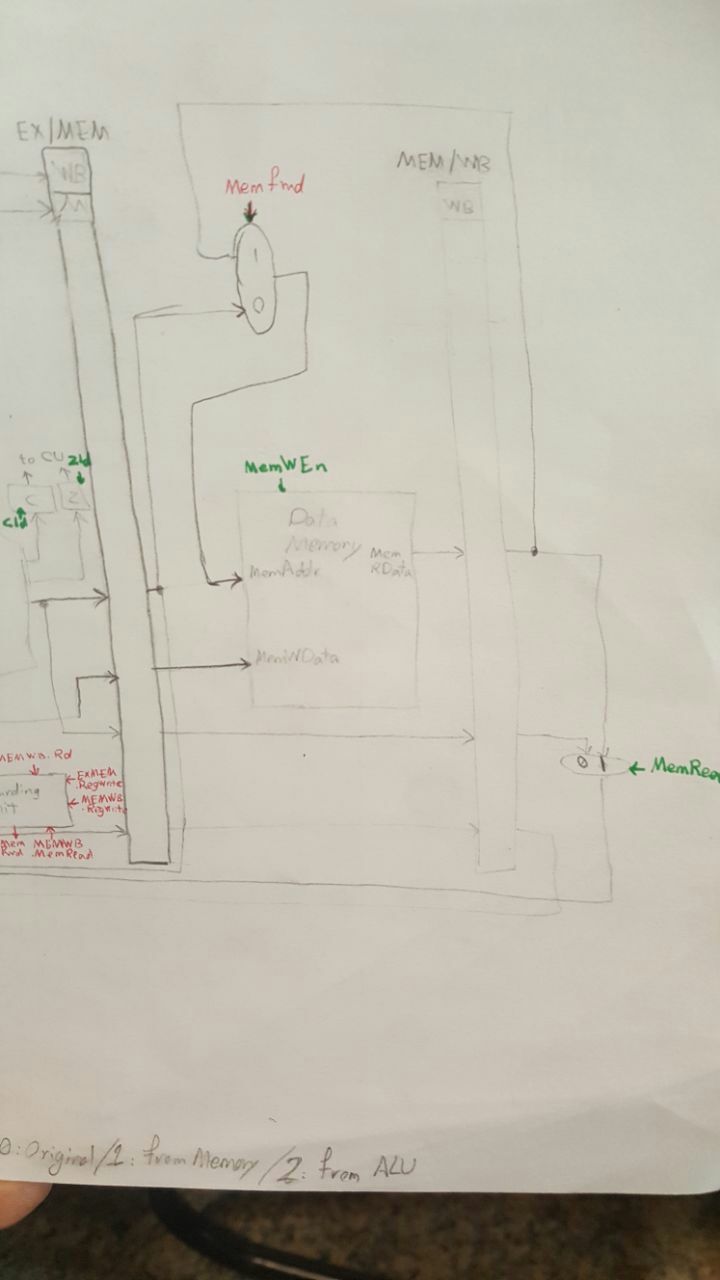 EX/MEM
WB
M
MEM/WB
WB
Mem fwd
1
0
to CU
Zld
C
Z
Cld
MemWEn
Data
Memory
Mem
RData
MemAddr
MemWData
MEMWB.Rd
EXMEM
.Regwrite
MEMWB
.Regwrite
Mem
fwd
MEMWB
.MemRead
0 1
MemRea
0: Original/1: from Memory/2: from ALU